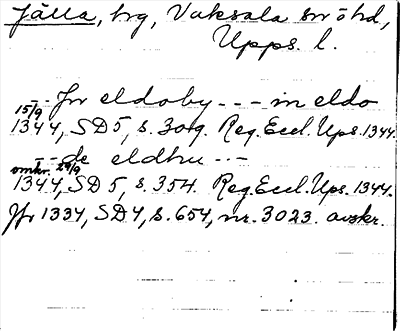 Jälla, by, Vaksala sn o hd,
Upps. l.
-- Jn eldoby --- in eldo
15/9
1344, SD 5, s. 309. Reg. Eccl. Ups. 1344.
-- de eldhu ---
omkr. 29/9
1344, SD 5, s. 354. Reg. Eccl. Ups. 1344.
Jfr 1334, SD 4, s. 654, nr. 3023. avskr.